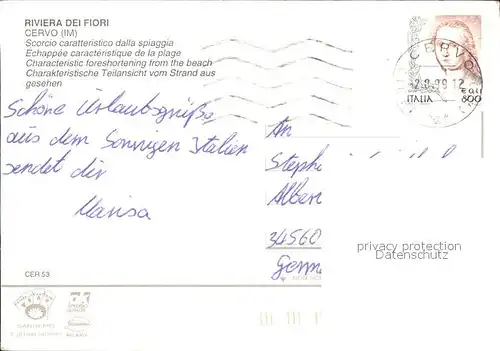 RIVIERA DEI FIORI
CERVO (IM)
Scorcio caratteristico dalla spiaggia
Echappée caractéristique de la plage
Characteristic foreshortening from the beach
Charakteristische Teilansicht vom Strand aus
gesehen
Schöne Urlaubsgrüße
aus dem Sonnigen Italien
sendet dir
Marisa
CERVO
ITALIA
600
An
Steph
Alber
34560
Germ
privacy protection
Datenschutz
CER 53
SANREMO
MILANO